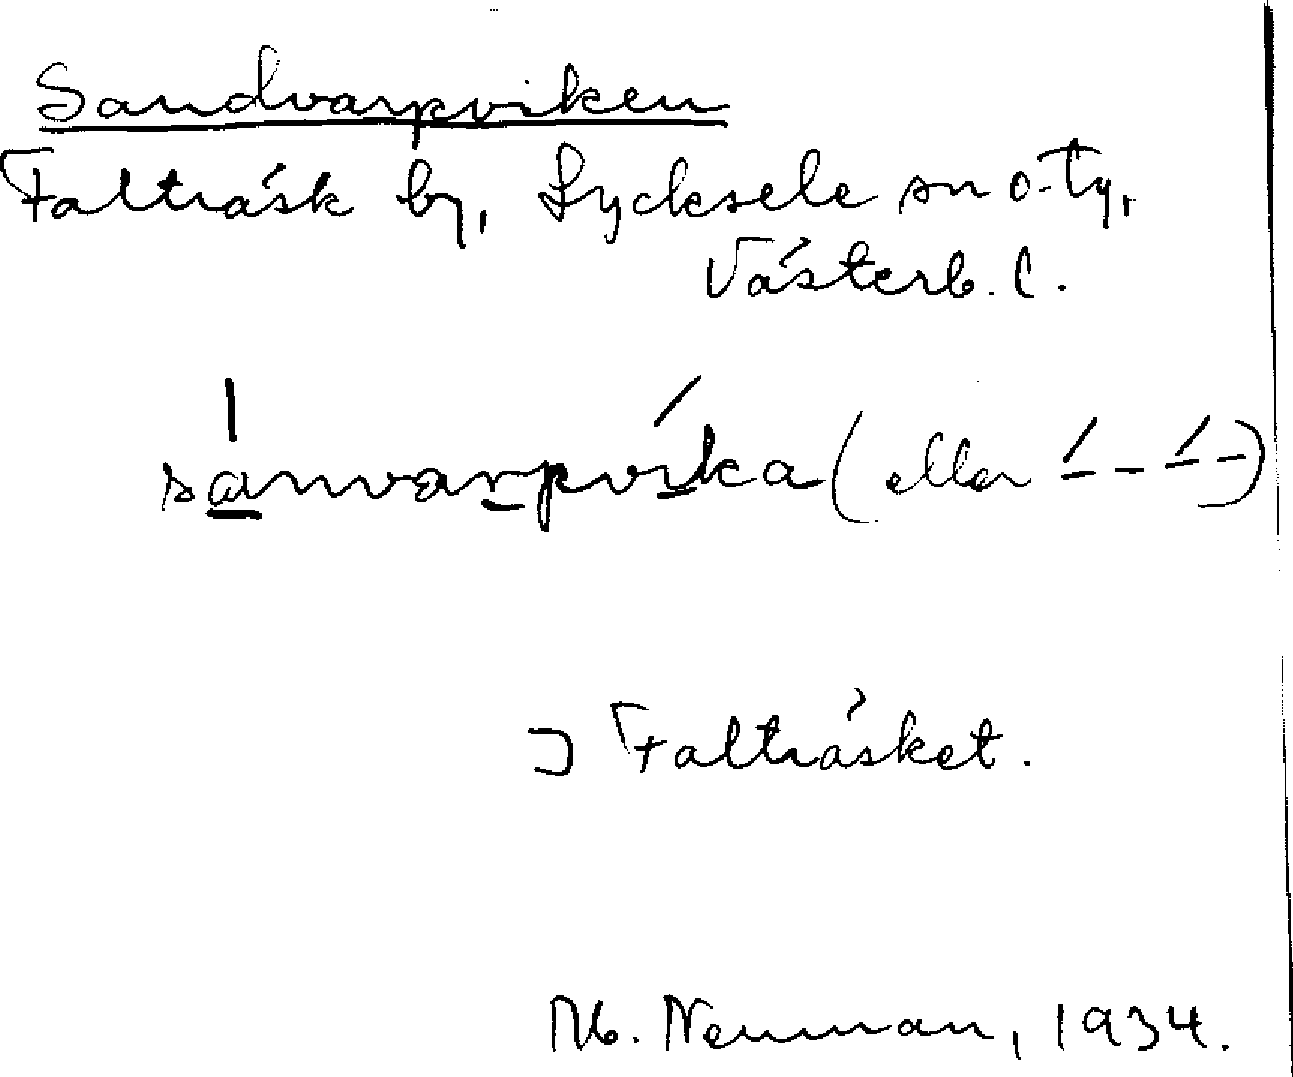 Sandvarpviken
Falträsk by, Lycksele sn o. Ty,
Västerb. l.
sanvarpvika (eller
⊐ Falträsket.
Neuman, 1934.